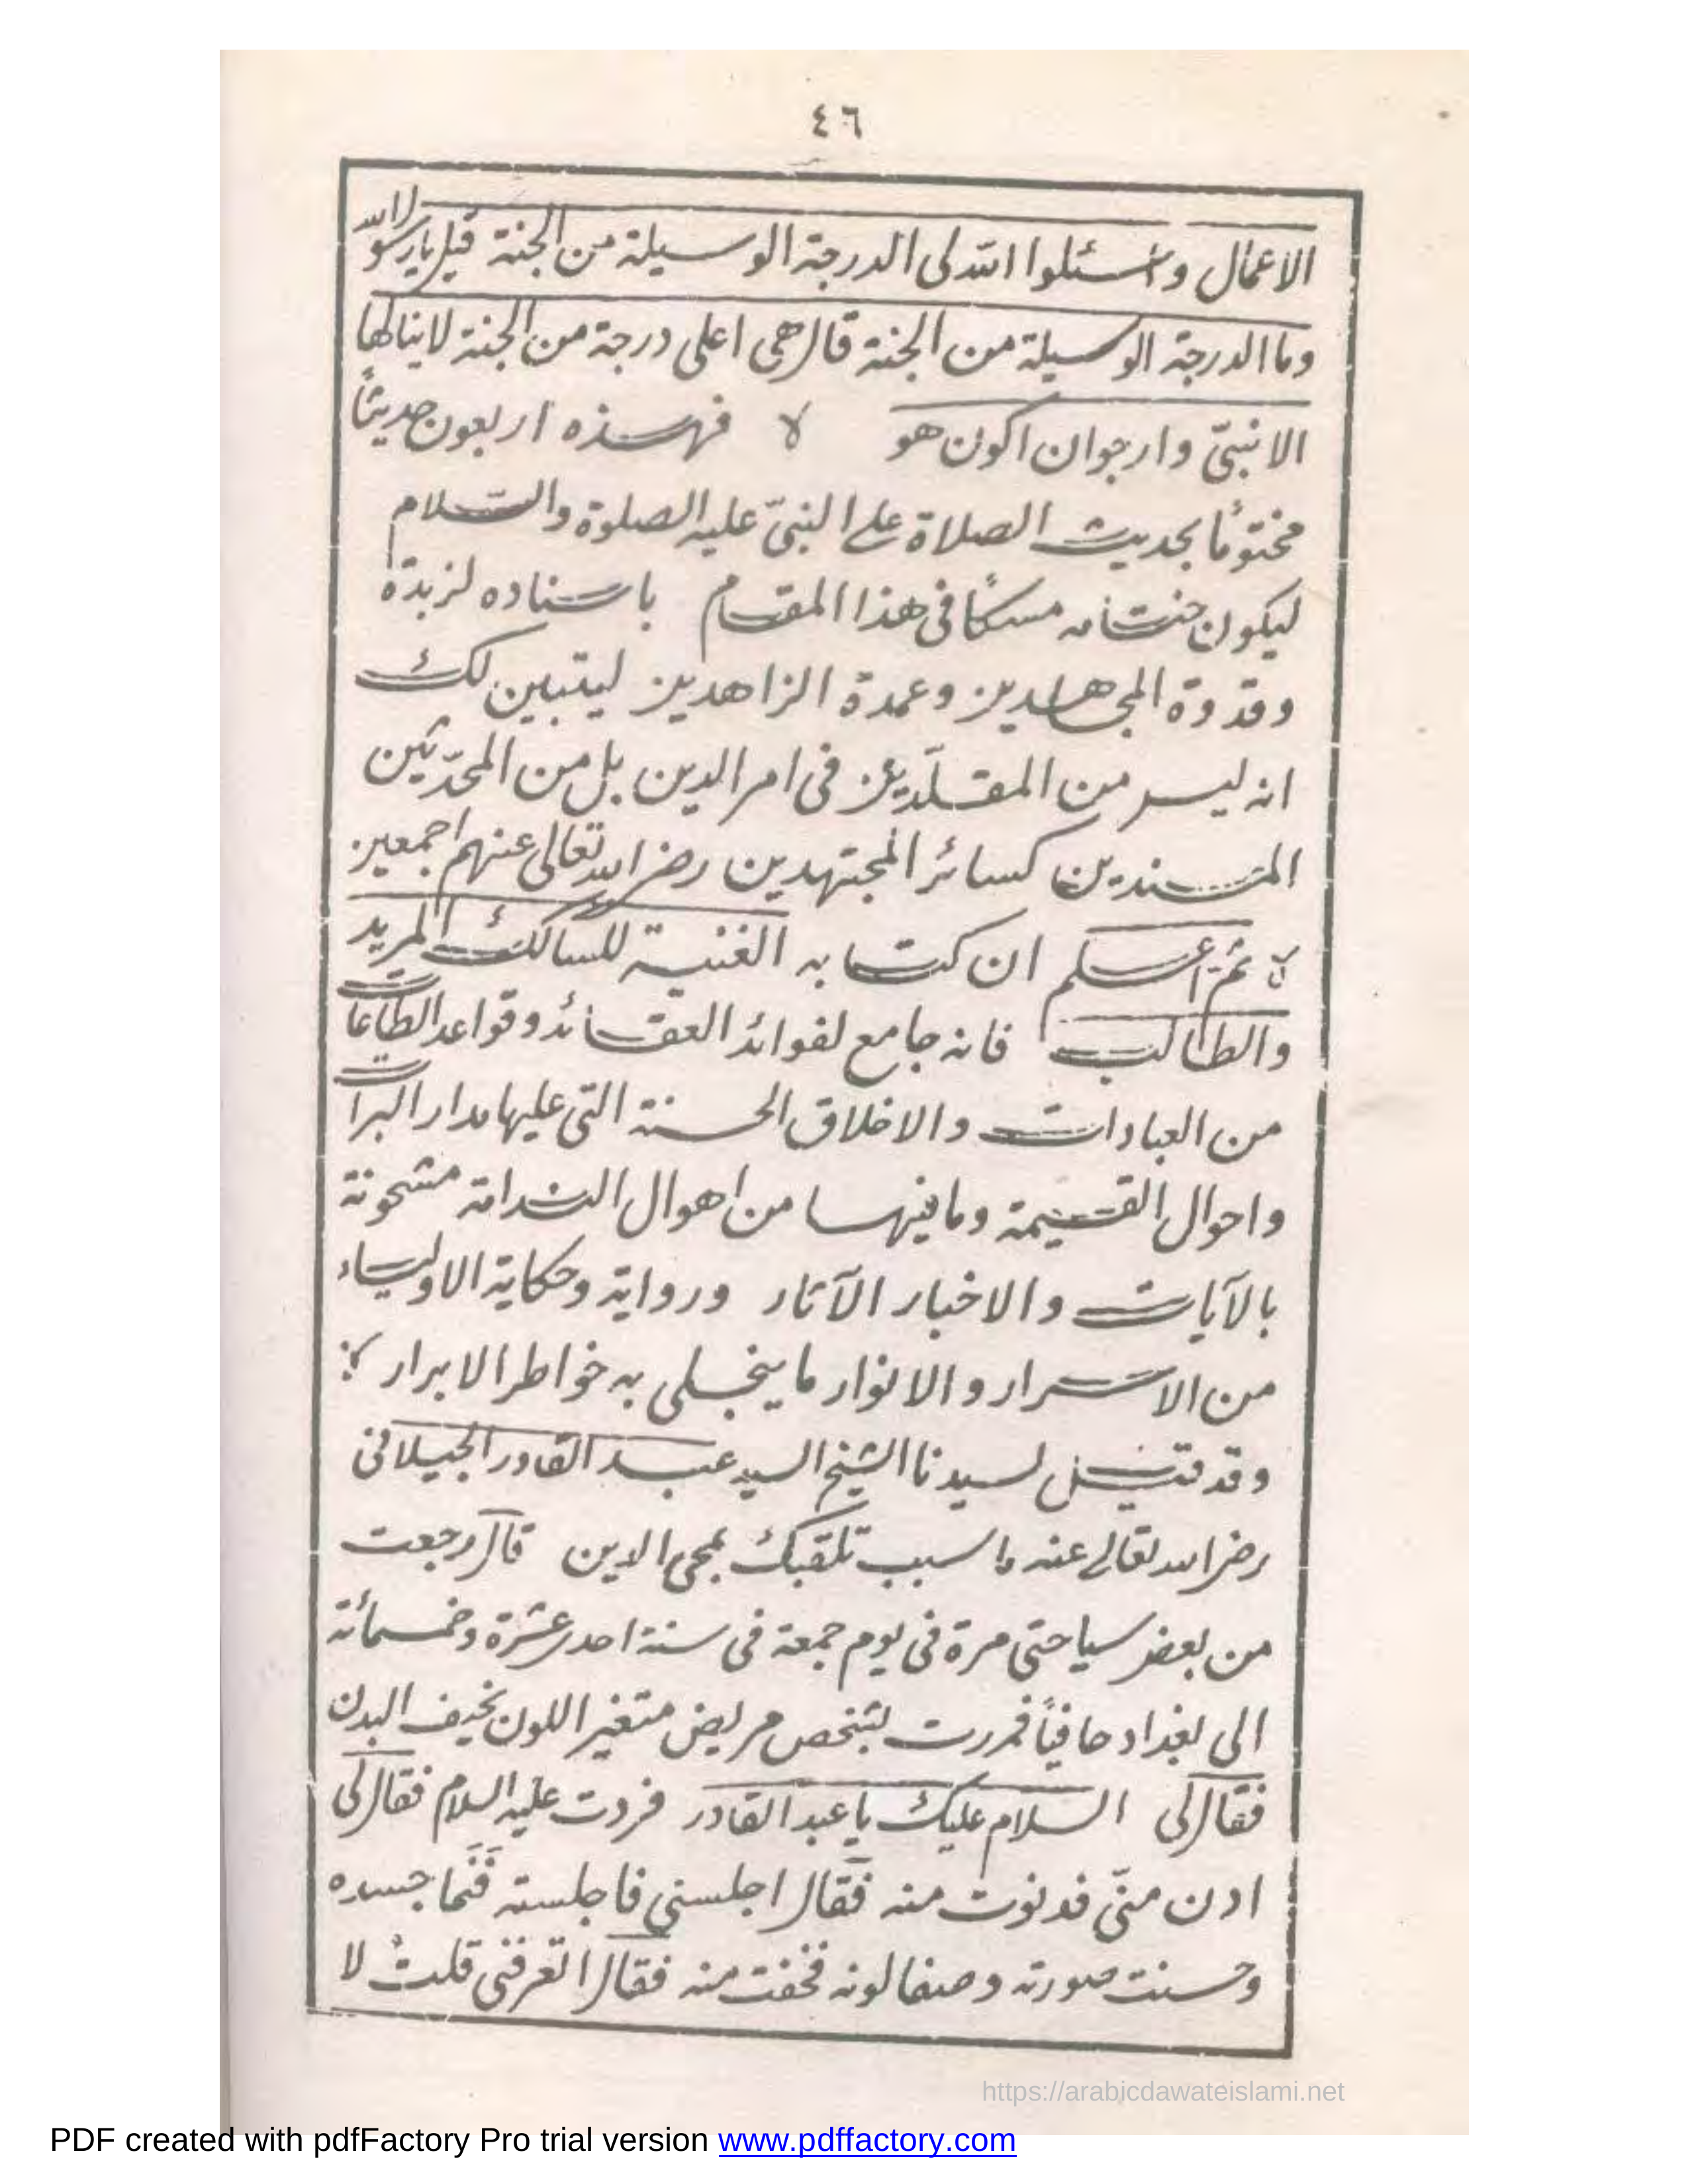 ٤٦
الاعمال واسئلوا الله لى الدرجة الوسيلة من الجنة قيل يارسول الله
وما الدرجة الوسيلة من الجنة قال هى اعلى درجة من الجنة لاينالها
الا نبىّ وارجوان اكون هو لا فهذه اربعون حديثاً
مختومًا بحديث الصلاة على النبىّ عليه الصلوة والسلام
ليكون ختامه مسكًا فى هذا المقام باسناده لزبدة
وقدوة المجاهدين وعمدة الزاهدين ليتبين لك
انه ليس من المقلّدين فى امر الدين بل من المحدّثين
المسندين كسائر المجتهدين رضى الله تعالى عنهم اجمعين
لا ثم اعلم ان كتابه الغنية للسالك المريد
والطالب فانه جامع لفوائد العقائد وقواعد الطاعات
من العبادات والاخلاق الحسنة التى عليها مدار البرات
واحوال القيمة وما فيها من اهوال الندامة مشحونة
بالآيات والاخبار الآثار ورواية وحكاية الاولياء
من الاسرار والانوار ما ينجلى به خواطر الابرار
وقد قيل لسيدنا الشيخ السيد عبد القادر الجيلانى
رضى الله تعالى عنه ما سبب تلقبك بمحى الدين قال رجعت
من بعض سياحتى مرة فى يوم جمعة فى سنة احدى عشرة وخمسمائة
الى بغداد حافياً فمررت بشخص مريض متغير اللون نحيف البدن
فقال لى السلام عليك يا عبد القادر فردت عليه السلام فقال لى
ادن منّى فدنوت منه فقال اجلسنى فاجلسته فنما جسده
وحسنت صورته وصفا لونه فخفت منه فقال اتعرفنى قلت لا
https://arabicdawateislami.net
PDF created with pdfFactory Pro trial version www.pdffactory.com